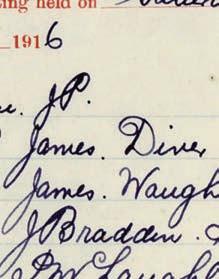 ing held on
1916
J.P.
James. Diver
James. Waugh
J Bradden.